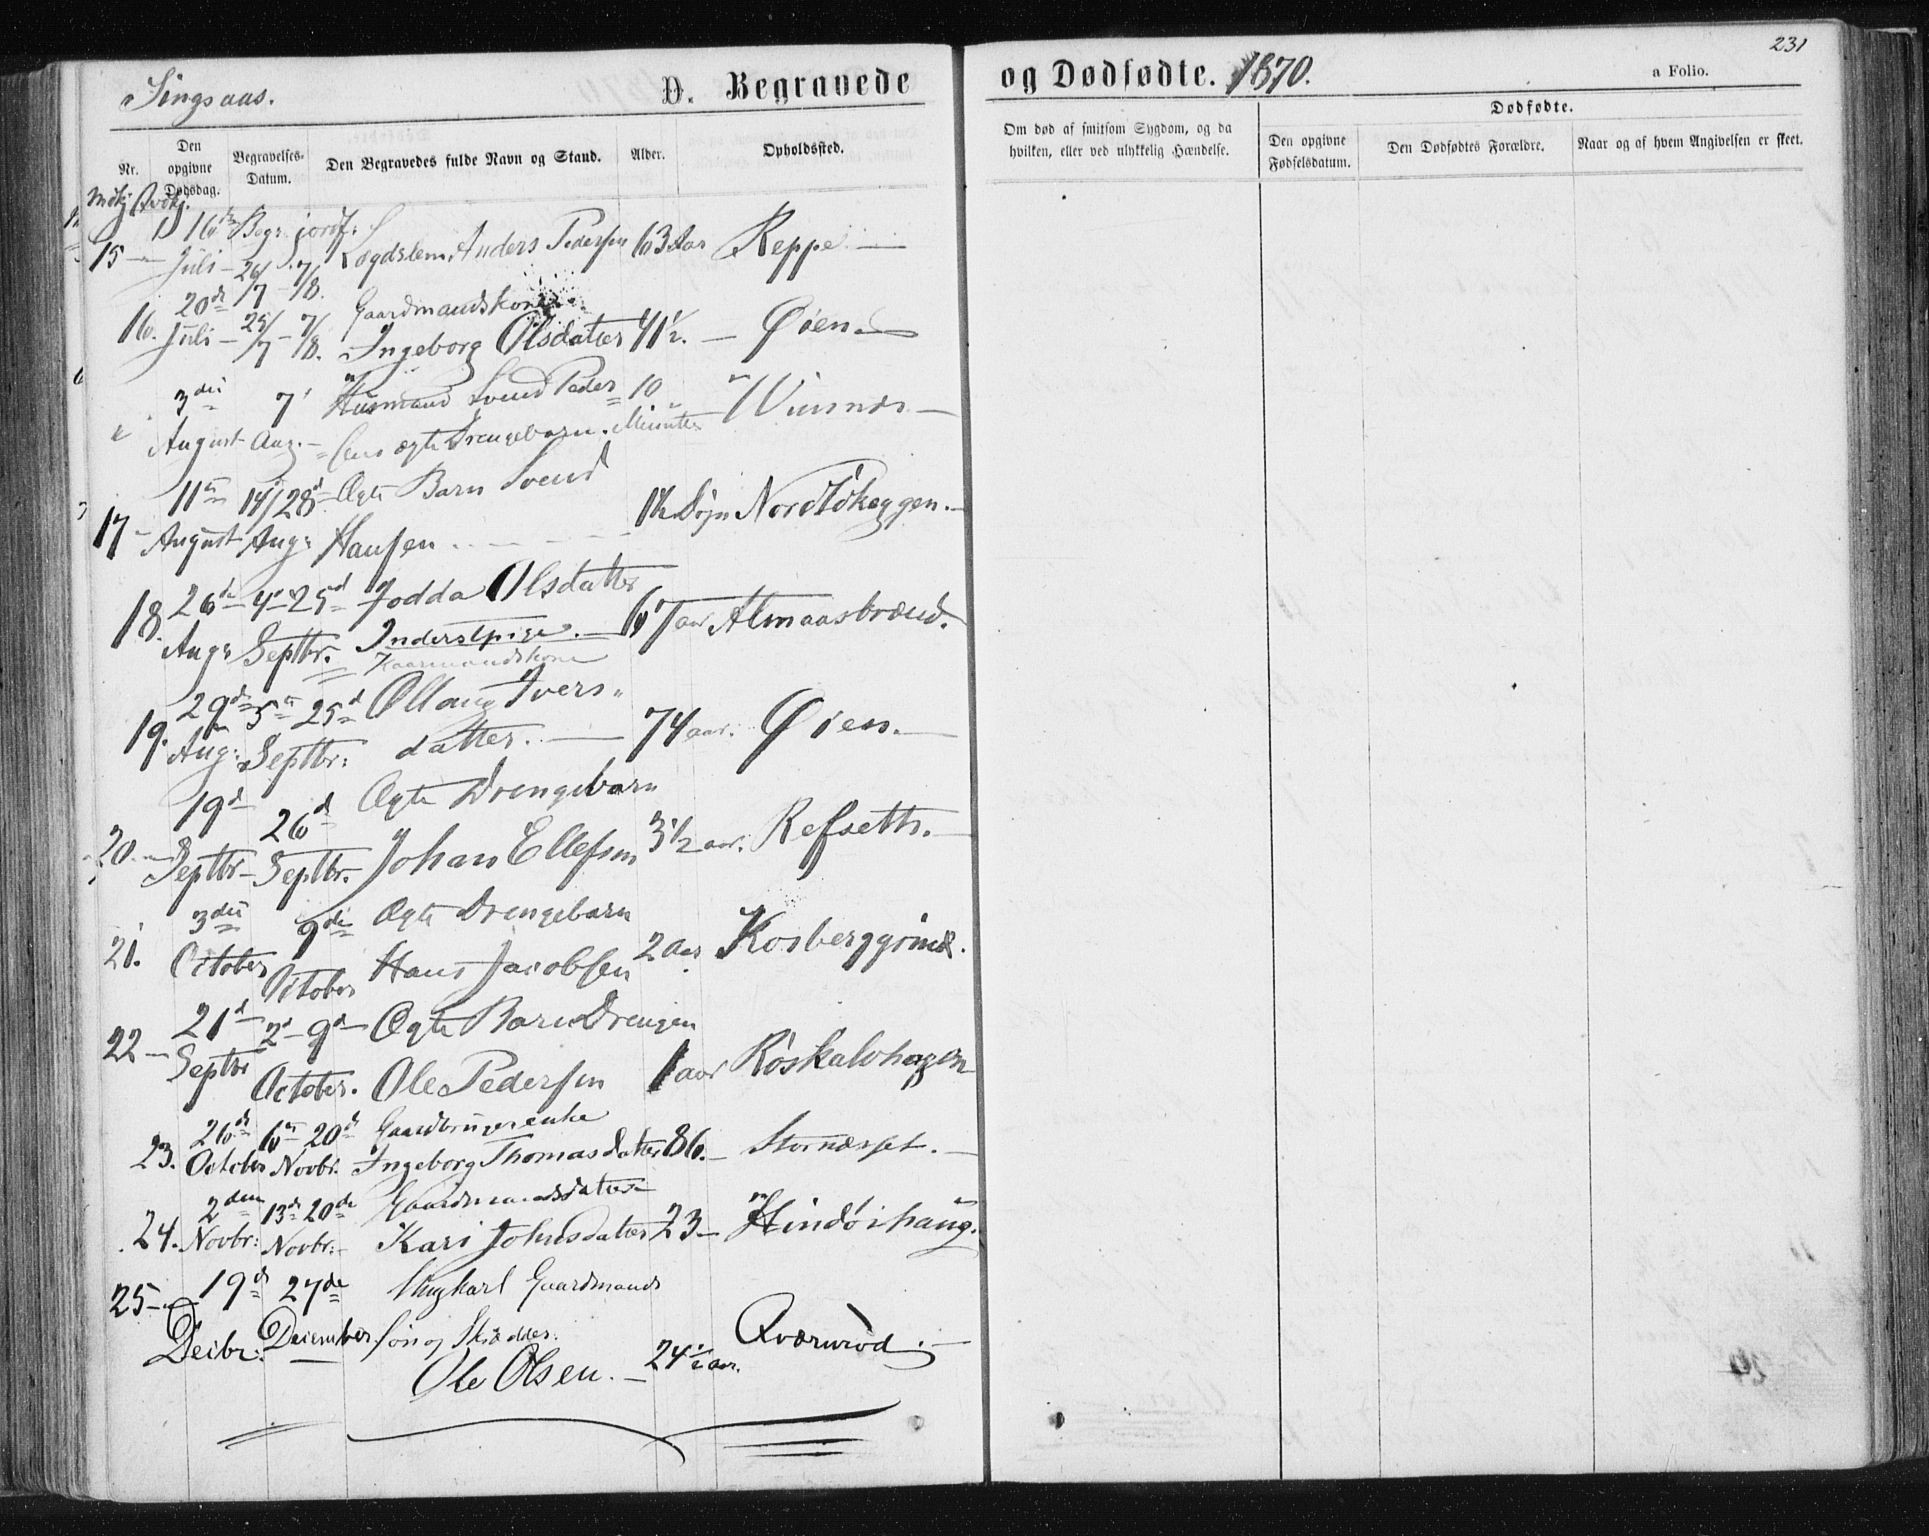 Singsaas.
D. Begravede
og Dødfødte. 1870.
231
a Folio.
Nr.
Den opgivne Dødsdag.
Begravelses-Datum.
Den Begravedes fulde Navn og Stand.
Alder.
Opholdssted.
Om død af smitsom Sygdom, og da hvilken, eller ved ulykkelig Hændelse.
Dødfødte.
Den opgivne Fødselsdatum.
Den Dødfødtes Forældre.
Naar og af hvem Angivelsen er skeet.
Mdkj. Qvdkj.
16de Begr. jordf:
15 — Juli — 26/7 - 7/8. Logdslem Anders Pedersen 63 Aar Reppe —
20de Gaardmandskone
16. Juli — 25/7 - 7/8. Ingeborg Olsdatter 41 1/2. — Øien —
3die 7' Husmand Svend Peder= 10 Winsnes —
" August Aug. — =sens ægte Drengebarn. Minutter
11te 14/28d Ægte Barn Svend
17 — August Aug: Hansen 1 1/2 Døgn Nordløkeggen. —
26de 4de 25d Jodda Olsdatter
18. Aug: Septbr. Inderstpige. — 67 aar Almaasbrænd.
Gaarmandskone
29de 5te 25d Ollaug Ivers=
19. Aug: Septbr: datter. — 74 aar. Øien. —
19d 26d Ægte Drengebarn
20. — Septbr — Septbr. Johan Ellefsen 3 1/2 aar. Refseth. —
3die 9de Ægte Drengebarn
21. October October Hans Jacobsen 2 Aar Kosberggrind.
21d 2d — 9d Ægte Barn Drengen
22 — Septbr October. Ole Pedersen 1 aar Røskalvhagen
26de 6te 20de Gaardbrugerenke
23. October Novbr. Ingeborg Thomasdatter 86. — Stornæsset. —
2den 13de 20de Gaardmandsdatter
24. Novbr: Novbr: — Kari Johnsdatter 23 — Hindøihaug.
19d 27de Ungkarl Gaardmands
25 — Decbr. December. søn og Skrædder. Qværnrød. —
Ole Olsen. — 24 1/2 aar.